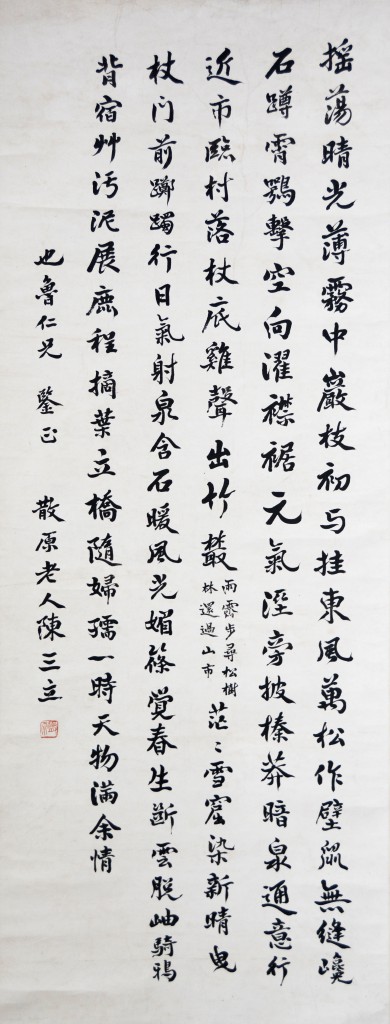 摇蕩晴光薄霧中巖枝初与挂東風萬松作壁孤無縫巉
石蹲霄鶚擊空向濯襟裾元氣溼旁披榛莽暗泉通意行
近市臨村落杖底雞聲出竹叢
雨霽步尋松樹
林還過山市
茫〻雪窟染新晴曳
杖门前躑躅行日氣射泉含石暖風光媚篠覚春生斷雲脫岫騎鴉
背宿艸污泥展鹿程摘葉立橋隨婦孺一時天物滿余情
也魯仁兄 鑒正 散原老人陳三立